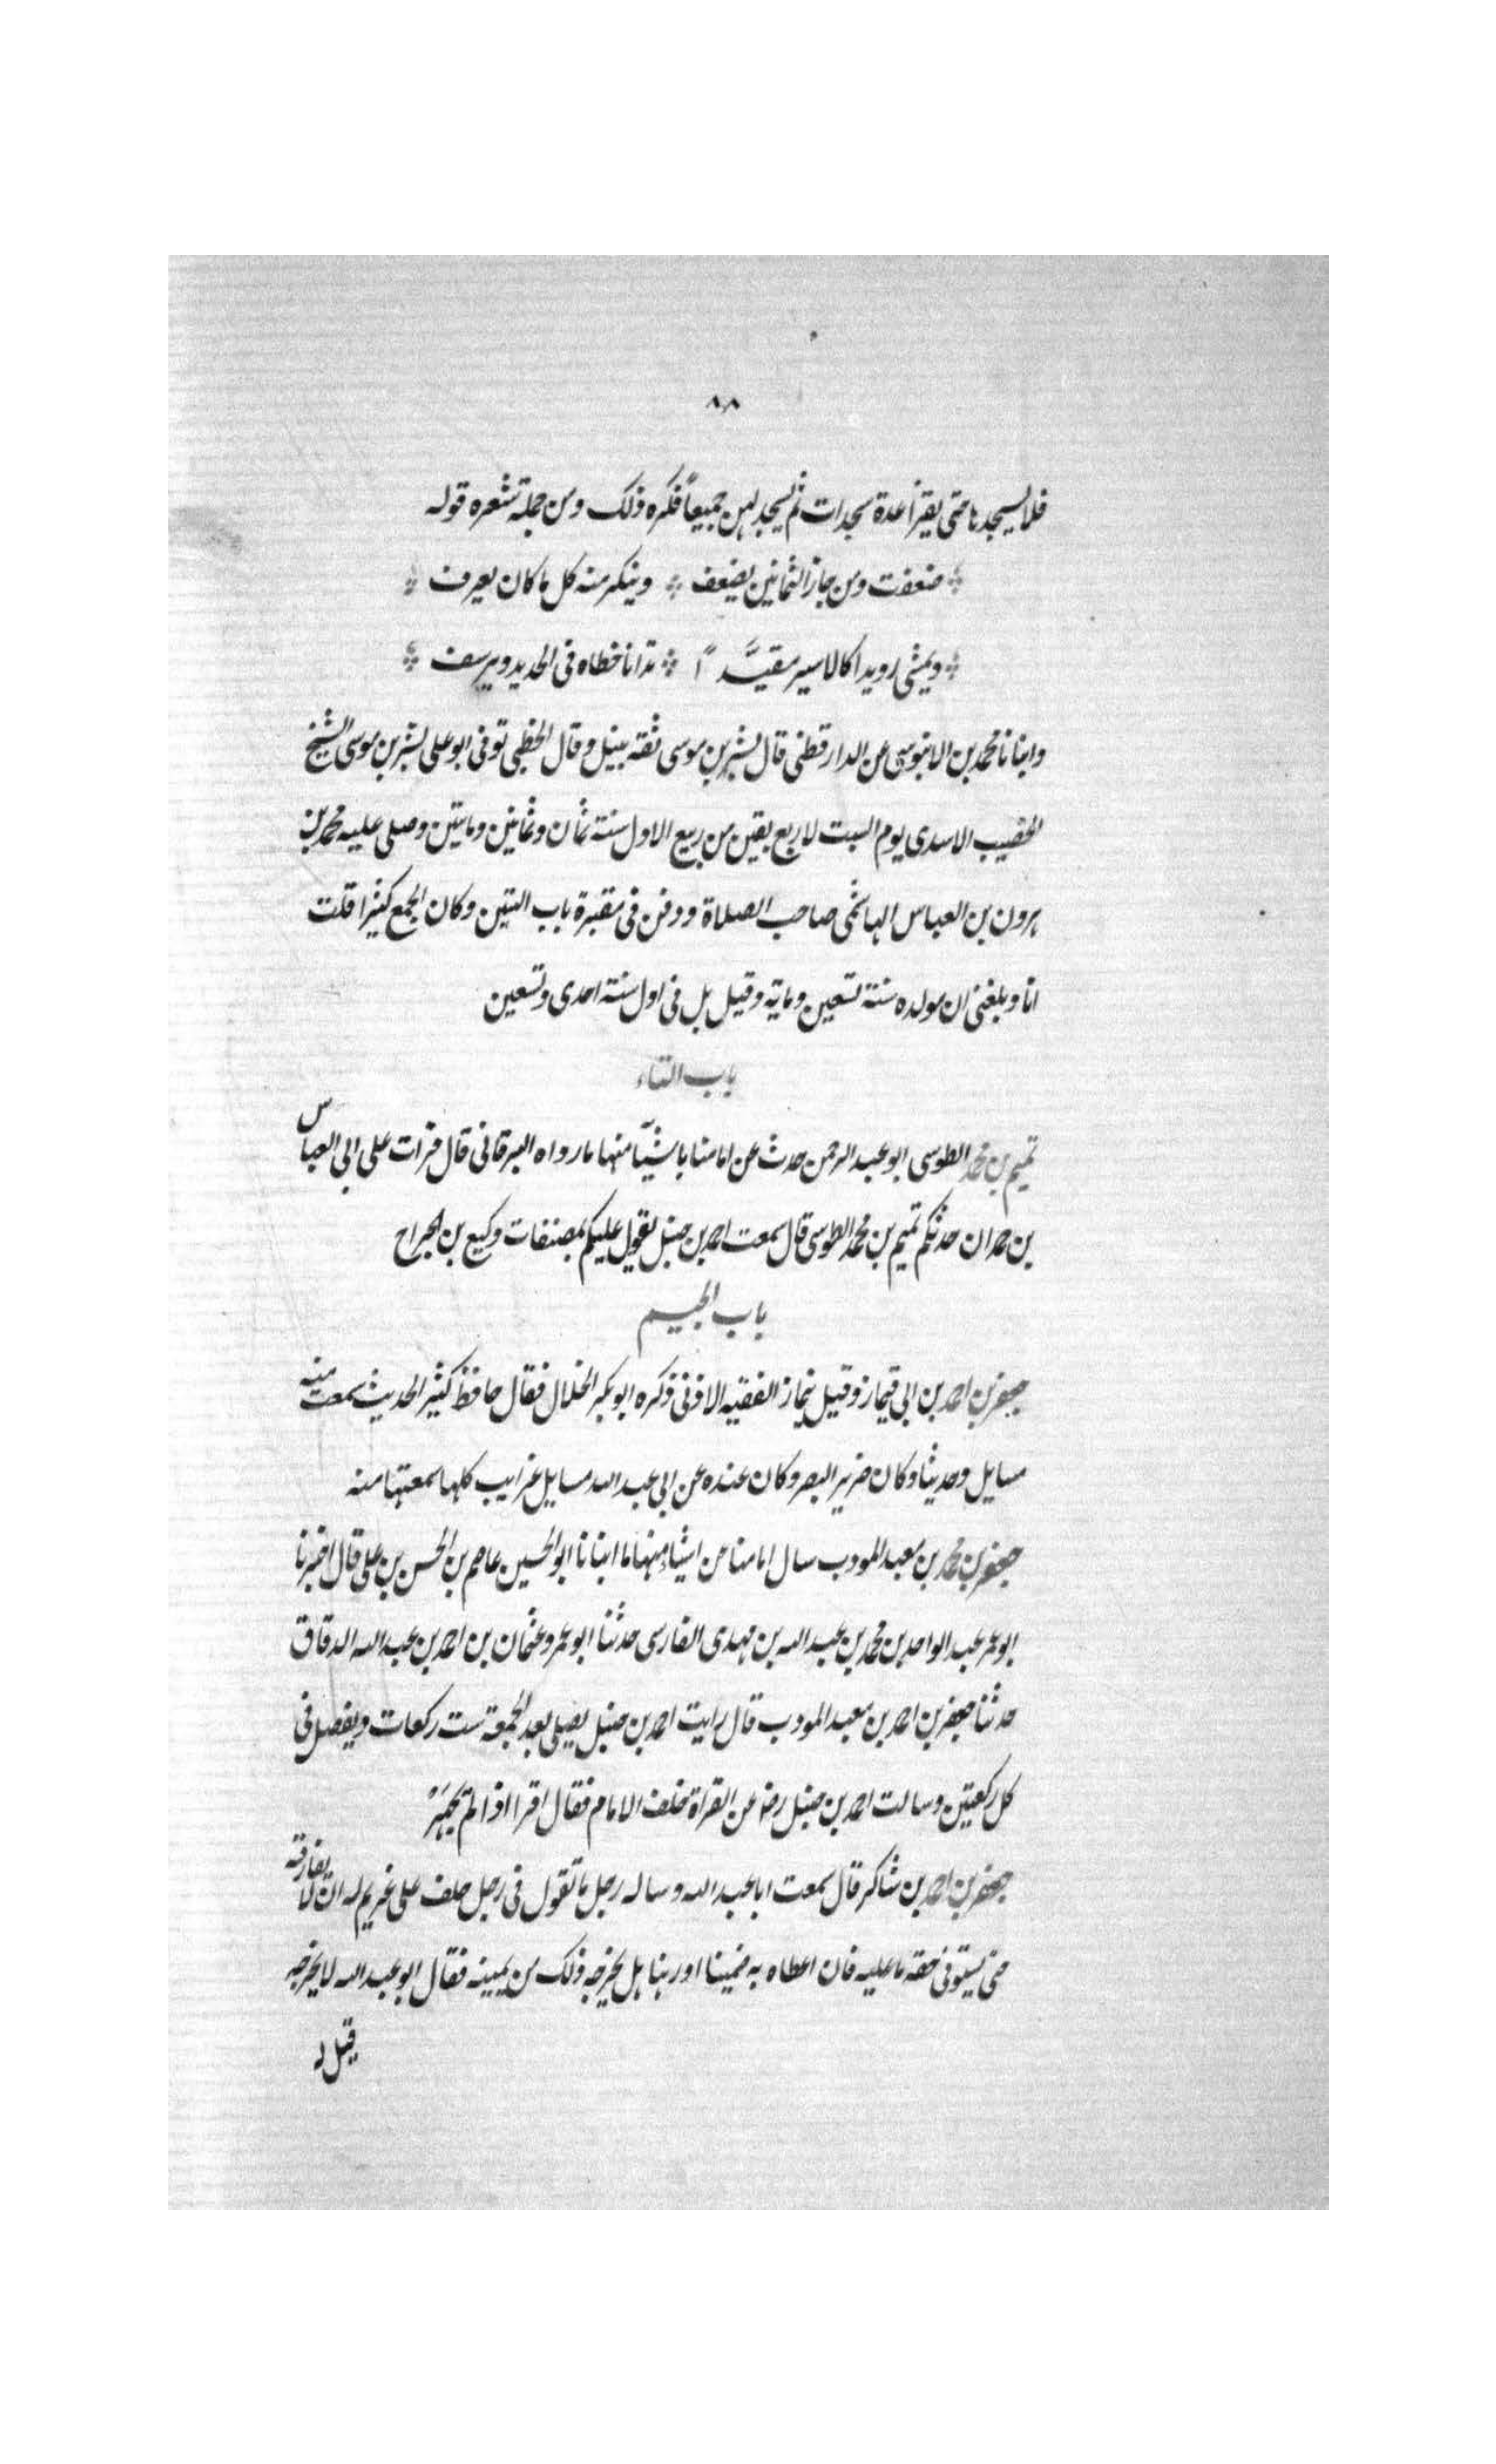 ٨٨
فلا يسجدها حتى يقرأ عدة سجدات ثم يسجد لهن جميعاً فكره ذلك ومن جملة شعره قوله
ضعفت ومن جاز الثمانين يضعف وينكر منه كل ما كان يعرف
ويمشي رويدا كالاسير مقيَّداً تدانا خطاه في الحديد ويرسف
وانبانا محمد بن الابنوسي عن الدارقطني قال بشر بن موسى ثقة نبيل وقال الخطبي توفي ابو علي بشر بن موسى الشيخ
الخضيب الاسدي يوم السبت لاربع بقين من ربيع الاول سنة ثمان وثمانين وماىتين وصلى عليه محمد بن
هرون بن العباس الهاشمي صاحب الصلاة ودفن في مقبرة باب التين وكان الجمع كثيرا قلت
انا وبلغني ان مولده سنة تسعين وماية وقيل بل في اول سنة احدى وتسعين
باب التاء
تميم بن محمد الطوسي ابو عبد الرحمن حدث عن امامنا باشيآ منها ما رواه البرقاني قال قرات على ابي العباس
بن حمدان حدثكم تميم بن محمد الطوسي قال سمعت احمد بن حنبل يقول عليكم بمصنفات وكيع بن الجراح
باب الجيم
جعفر بن احمد بن ابي قيماز وقيل نيماز الفقيه الاذني ذكره ابو بكر الخلال فقال حافظ كثير الحديث سمعت منه
مسايل وحديثا وكان ضرير البصر وكان عنده عن ابي عبد الله مسايل غرايب كلها سمعتها منه
جعفر بن محمد بن معبد المودب سال امامنا عن اشياء منها ما انبانا ابو الحسين عاصم بن الحسن بن علي قال اخبرنا
ابو عمر عبد الواحد بن محمد بن عبد الله بن مهدي الفارسي حدثنا ابو عمرو عثمان بن احمد بن عبد الله الدقاق
حدثنا جعفر بن احمد بن معبد المودب قال رايت احمد بن حنبل يصلي بعد الجمعة ست ركعات ويفصل في
كل ركعتين وسالت احمد بن حنبل رضه عن القراة خلف الامام فقال اقرا اذا لم يجهر
جعفر بن احمد بن شاكر قال سمعت ابا عبد الله وساله رجل ما تقول في رجل حلف على غريم له ان لا يفارقه
حتى يستوفي حقه ما عليه فان اعطاه به ضمينا او رهنا هل يخرجه ذلك من يمينه فقال ابو عبد الله لا يخرجه
قيل له